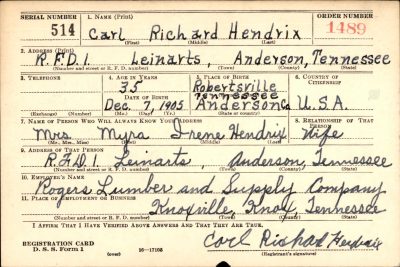 SERIAL NUMBER 1. NAME (Print) ORDER NUMBER
514 Carl Richard Hendrix 1489
(First) (Middle) (Last)
2. ADDRESS (Print)
R.F.D.1. Leinarts, Anderson, Tennessee
(Number and street or R. F. D. number) (Town) (County) (State)
3. TELEPHONE 4. AGE IN YEARS 5. PLACE OF BIRTH 6. COUNTRY OF CITIZENSHIP
35 Robertsville
Tennessee
DATE OF BIRTH (Town or county)
Dec. 7, 1905 Anderson Co U.S.A.
(Exchange) (Number) (Mo.) (Day) (Yr.) (State or country)
7. NAME OF PERSON WHO WILL ALWAYS KNOW YOUR ADDRESS 8. RELATIONSHIP OF THAT PERSON
Mrs. Myra Irene Hendrix Wife
(Mr., Mrs., Miss) (First) (Middle) (Last)
9. ADDRESS OF THAT PERSON
R.F.D.1 Leinarts, Anderson, Tennessee
(Number and street or R. F. D. number) (Town) (County) (State)
10. EMPLOYER'S NAME
Rogers Lumber and Supply Company
11. PLACE OF EMPLOYMENT OR BUSINESS
Knoxville, Knox, Tennessee
(Number and street or R. F. D. number) (Town) (County) (State)
I AFFIRM THAT I HAVE VERIFIED ABOVE ANSWERS AND THAT THEY ARE TRUE.
REGISTRATION CARD
D. S. S. Form 1 (over) 16—17105
Carl Rishad Hendrix
(Registrant's signature)